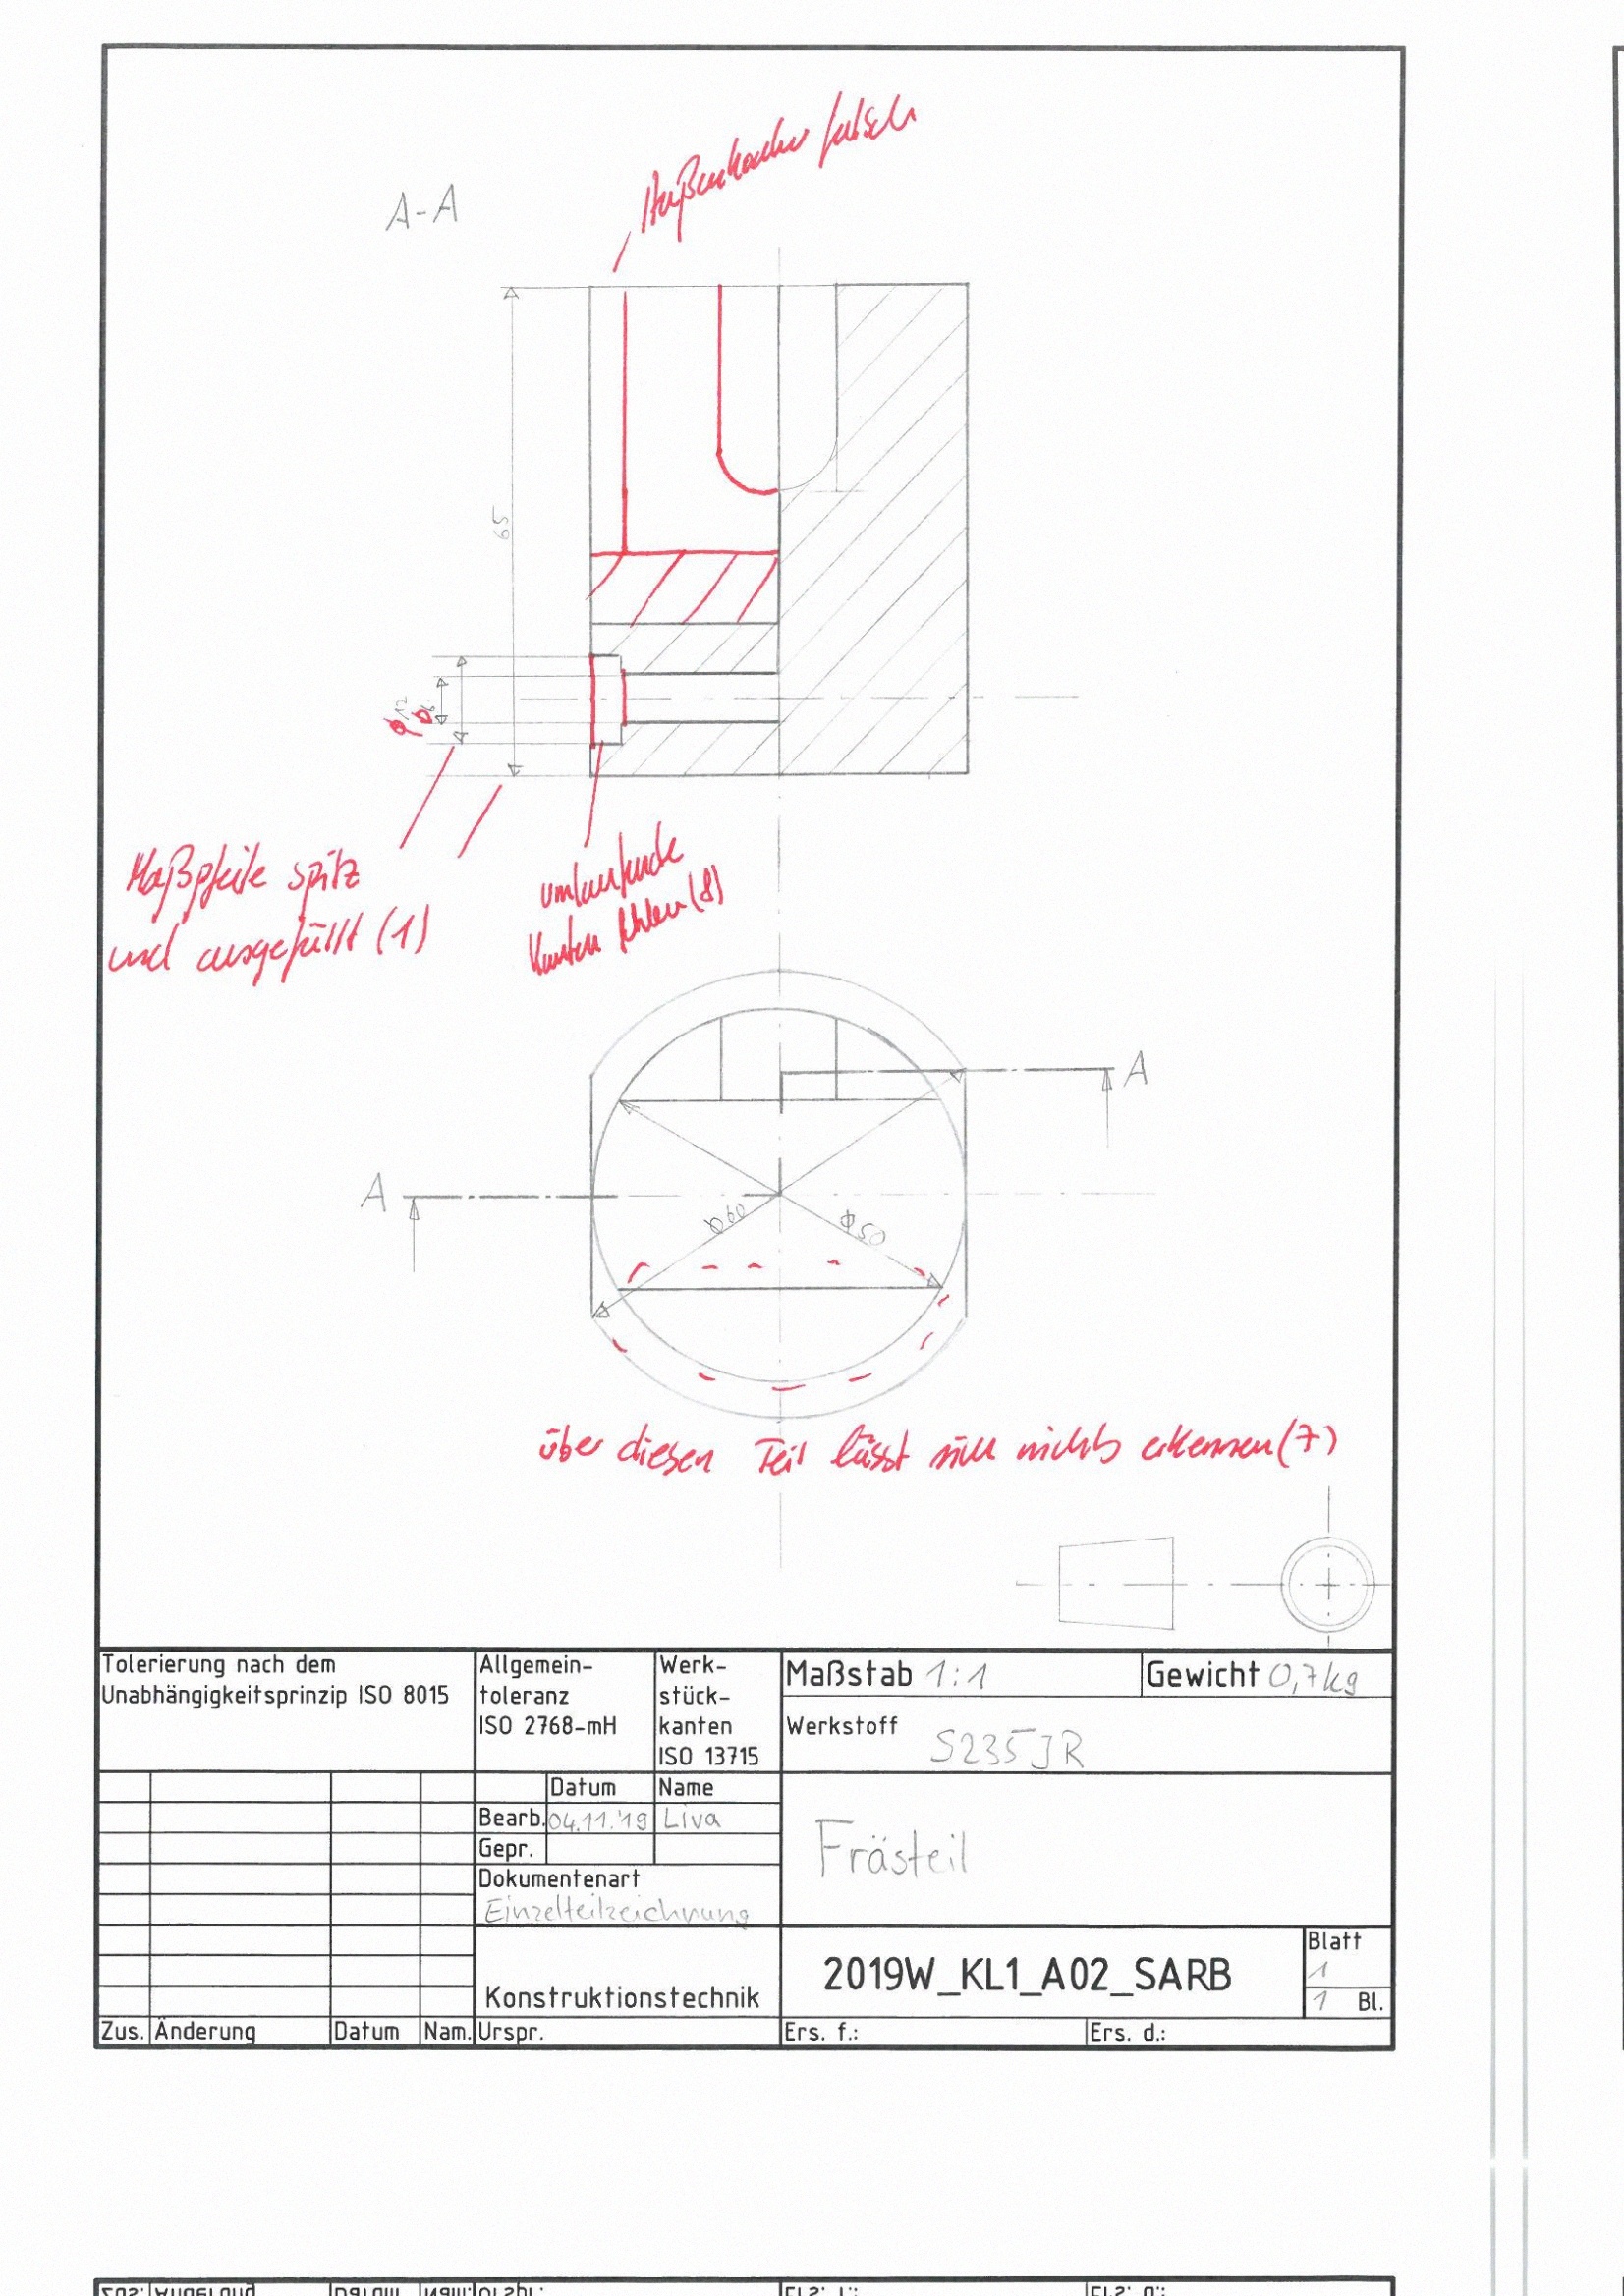 Außenkontur falsch
A-A
65
ϕ12
ϕ6
Maßpfeile spitz
und ausgefüllt (1)
umlaufende
Kanten fehlen (8)
A
A
ϕ60
ϕ50
über diesen Teil lässt sich nichts erkennen (7)
Tolerierung nach dem
Unabhängigkeitsprinzip ISO 8015
Allgemein-
toleranz
ISO 2768-mH
Werk-
stück-
kanten
ISO 13715
Maßstab 1:1
Gewicht 0,7kg
Werkstoff S235JR
Datum Name
Bearb. 04.11.'19 Liva
Gepr.
Dokumentenart
Einzelteilzeichnung
Frästeil
Konstruktionstechnik
2019W_KL1_A02_SARB
Blatt
1
1 Bl.
Zus. Änderung Datum Nam. Urspr. Ers. f.: Ers. d.: